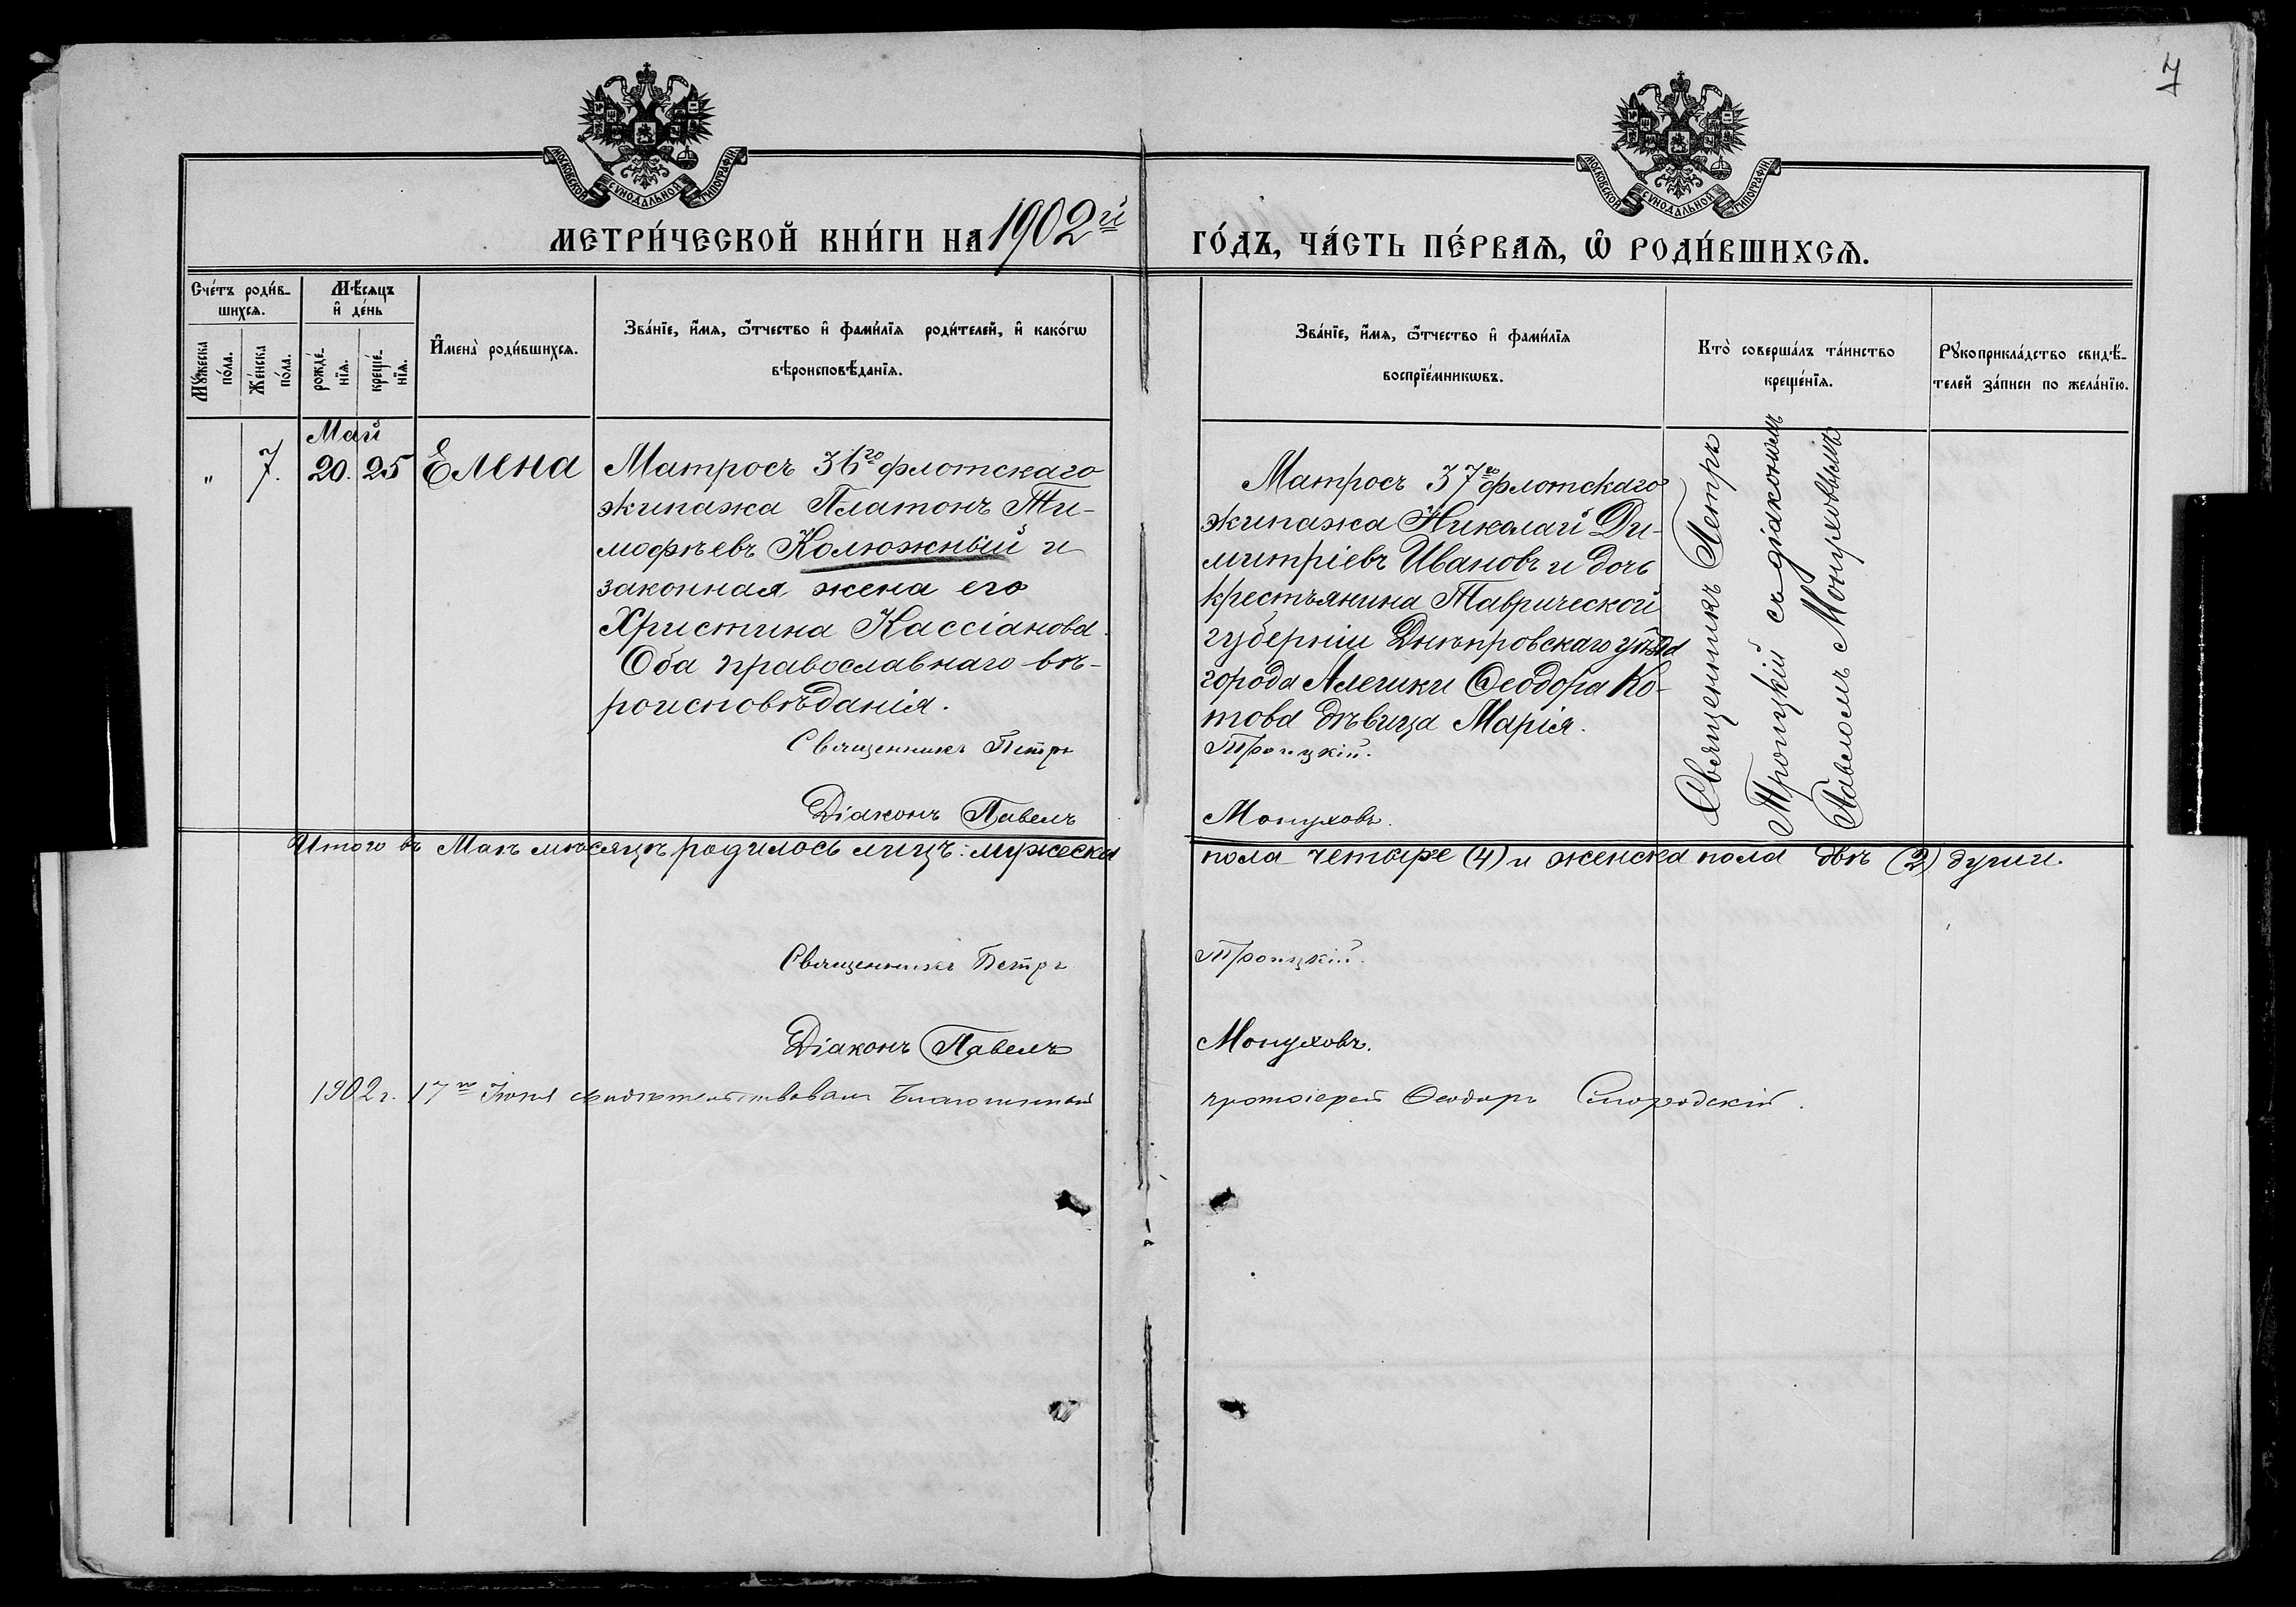 7
МОСКОВСКОЙ СѴНОДАЛЬНОЙ ТИПОГРАФІИ
МОСКОВСКОЙ СѴНОДАЛЬНОЙ ТИПОГРАФІИ
МЕТРИ́ЧЕСКОЙ КНИ́ГИ НА 1902й ГО́ДЪ, ЧА́СТЬ ПЕ́РВАѦ, Ѡ҆ РОДИ́ВШИХСѦ.
Сче́тъ роди́в-
шихсѧ.
Мѣ́сѧцъ
и҆ де́нь
Мꙋ́жеска
по́ла.
Же́нска
по́ла.
рожде́-
нїѧ.
креще́-
нїѧ.
И҆мена̀ роди́вшихсѧ.
Зва́нїе, и҆́мѧ, ѻ҆́тчество и҆ фами́лїѧ роди́телей, и҆ како́гѡ
вѣроисповѣ́данїѧ.
Зва́нїе, и҆́мѧ, ѻ҆́тчество и҆ фами́лїѧ
воспрїе́мникѡвъ.
Кто̀ соверша́лъ та́инство
креще́нїѧ.
Рꙋкоприкла́дство свидѣ́-
телей за́писи по жела́нїю.
Май
" 7. 20. 25 Елена
Матросъ 36го флотскаго
экипажа Платонъ Ти-
мофѣевъ Колюжный и
законная жена его
Христина Кассіанова.
Оба православнаго вѣ-
роисповѣданія.
Матросъ 37го флотскаго
экипажа Николай Ди-
митріевъ Ивановъ и дочь
крестьянина Таврической
губерніи Днѣпровскаго уѣзда
города Алешки Ѳеодора Ко-
това дѣвица Марія.
Священникъ Петръ
Троицкій съ діакономъ
Павломъ Мопуховымъ
Священникъ Петръ Троицкій.
Діаконъ Павелъ Мопуховъ.
Итого въ Маѣ мѣсяцѣ родилось лицъ: мужеска пола четыре (4) и женска пола двѣ (2) души.
Священникъ Петръ Троицкій.
Діаконъ Павелъ Мопуховъ.
1902 г. 17го Іюня свидѣтельствовалъ Благочинный протоіерей Ѳеодоръ